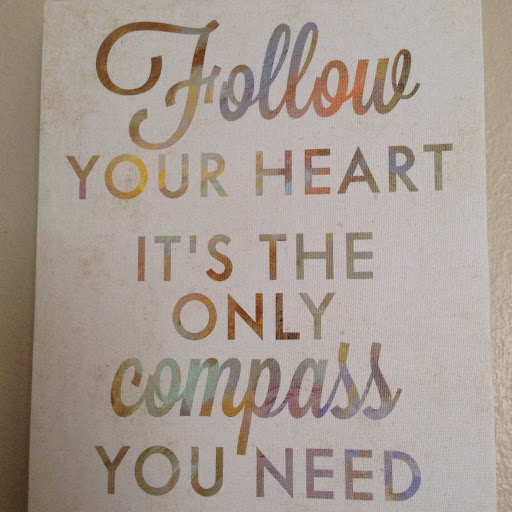 Follow
YOUR HEART
IT'S THE
ONLY
compass
YOU NEED